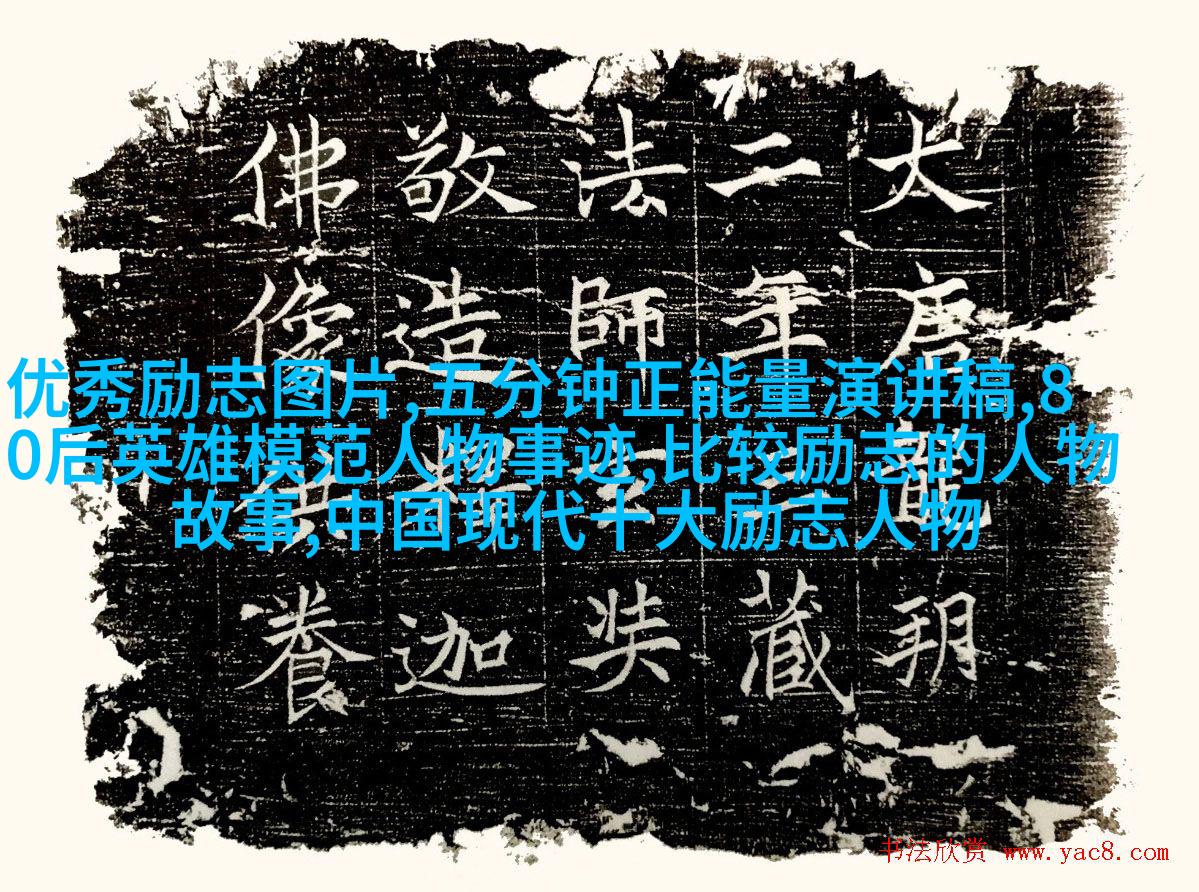 大唐龍朔
二年三藏
法師奘
敬造迦
佛像供養
优秀励志图片,五分钟正能量演讲稿,8
0后英雄模范人物事迹,比较励志的人物
故事,中国现代十大励志人物
书法欣赏 www.yac8.com